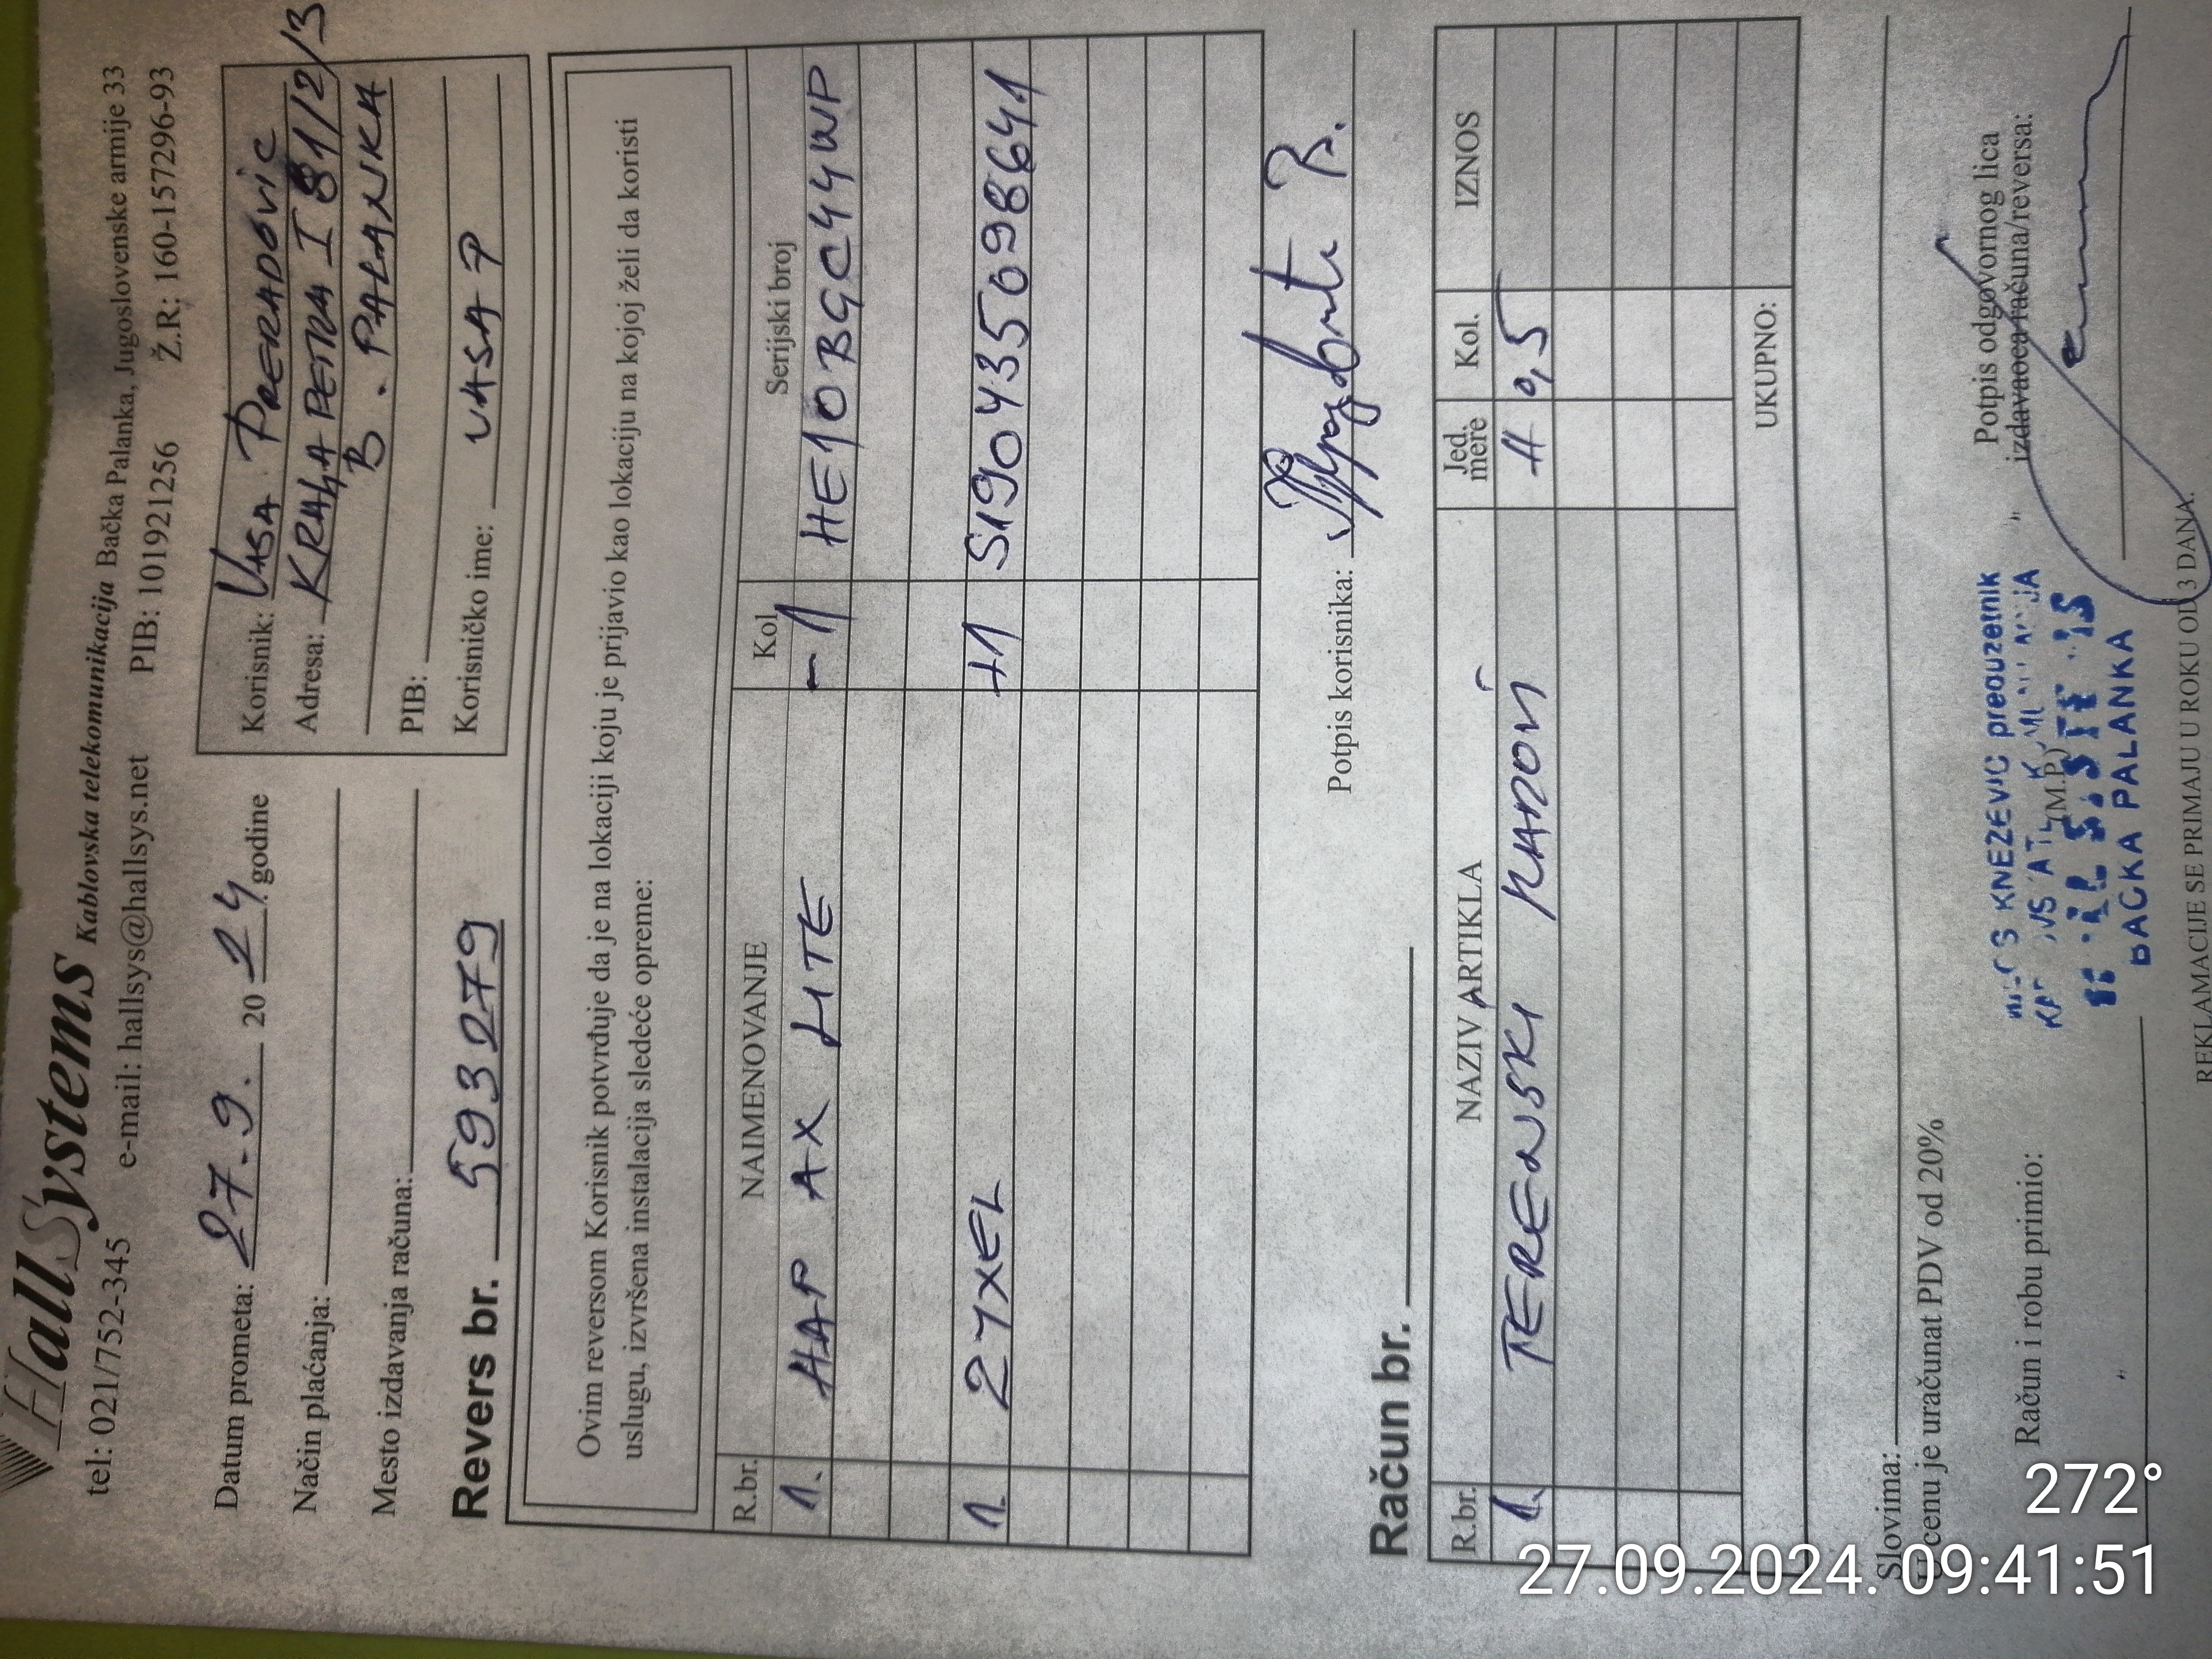 HallSystems Kablovska telekomunikacija Bačka Palanka, Jugoslovenske armije 33
tel: 021/752-345 e-mail: hallsys@hallsys.net PIB: 101921256 Ž.R: 160-157296-93
Datum prometa: 27.9. 20 24. godine
Način plaćanja:
Mesto izdavanja računa:
Korisnik: VASA PRERADOVIC
Adresa: KRALJA PETRA I 81/2/3
B. PALANKA
PIB:
Korisničko ime: VASA P
Revers br. 593279
Ovim reversom Korisnik potvrđuje da je na lokaciji koju je prijavio kao lokaciju na kojoj želi da koristi
uslugu, izvršena instalacija sledeće opreme:
R.br. NAIMENOVANJE Kol Serijski broj
1. HAP AX LITE -1 HE10BGC44WP
1. ZYXEL +1 S190435098641
Potpis korisnika:
Račun br.
R.br. NAZIV ARTIKLA Jed. mere Kol. IZNOS
1. TERENSKI RADOVI H 0,5
UKUPNO:
Slovima:
U cenu je uračunat PDV od 20%
Račun i robu primio:
(M.P.)
KNEZEVIC preduzetnik
BACKA PALANKA
Potpis odgovornog lica
izdavaoca računa/reversa:
REKLAMACIJE SE PRIMAJU U ROKU OD 3 DANA.
272°
27.09.2024. 09:41:51